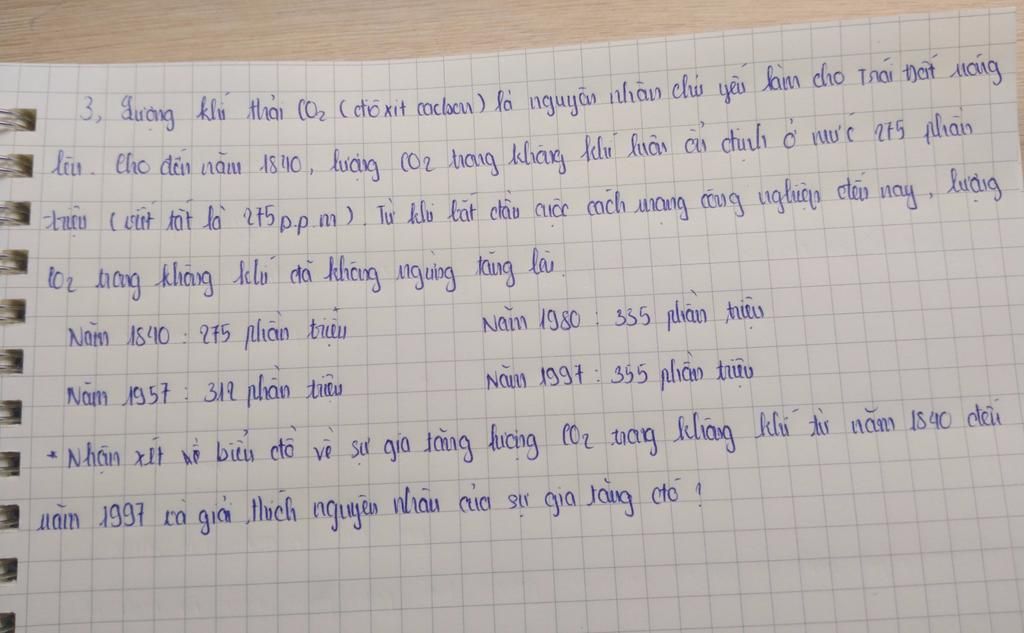 3, Lượng khí thải CO2 (điôxit cacbon) là nguyên nhân chủ yếu làm cho Trái Đất nóng
lên. Cho đến năm 1840, lượng CO2 trong không khí luôn ổn định ở mức 275 phần
triệu (viết tắt là 275p.p.m). Từ khi bắt đầu cuộc cách mạng công nghiệp đến nay, lượng
CO2 trong không khí đã không ngừng tăng lên.
Năm 1840 : 275 phần triệu
Năm 1980 : 335 phần triệu
Năm 1957 : 312 phần triệu
Năm 1997 : 355 phần triệu
* Nhận xét về biểu đồ về sự gia tăng lượng CO2 trong không khí từ năm 1840 đến
năm 1997 và giải thích nguyên nhân của sự gia tăng đó ?